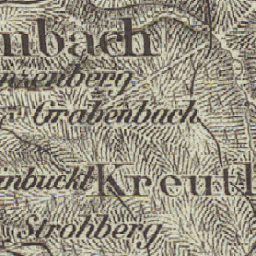 nbach
nzenberg
Grabenbach
nbuckl
Kreutl
Strohberg